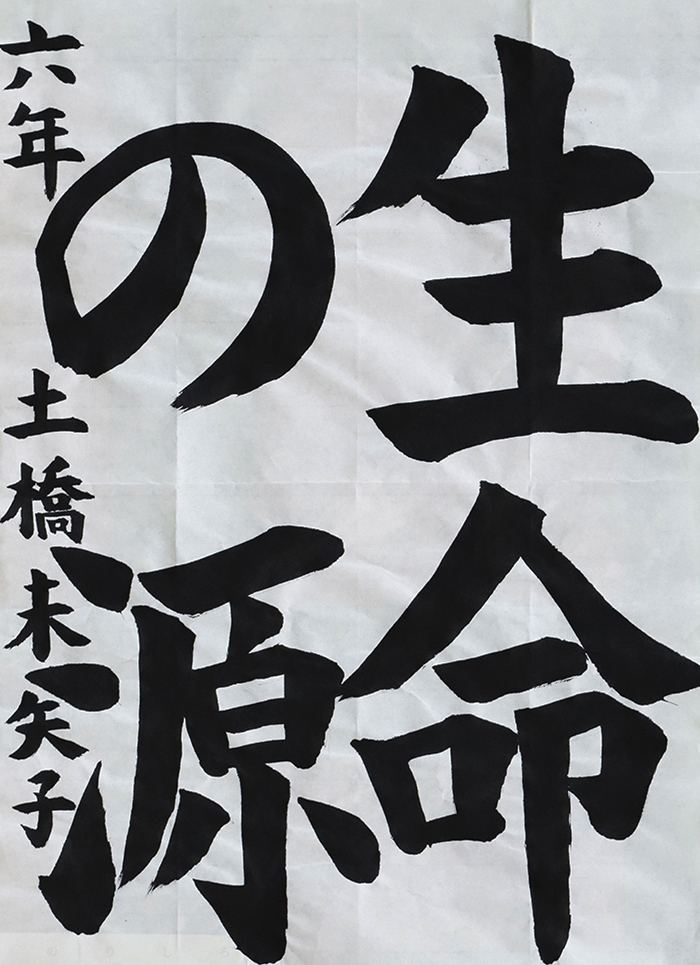 生命
の源
六年 土橋未矢子